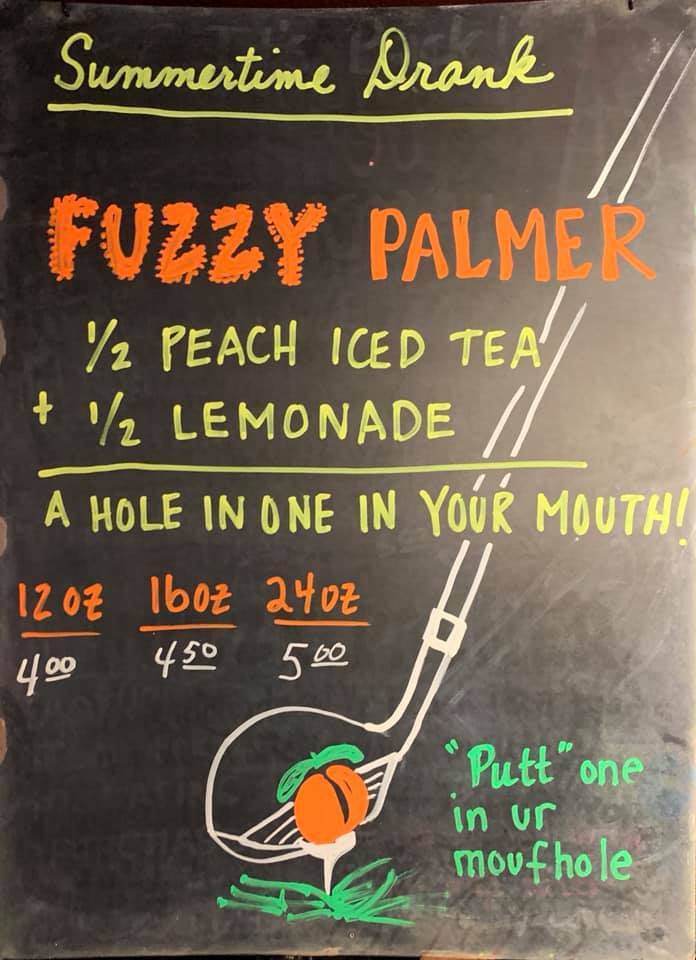 Summertime Drank
FUZZY PALMER
1/2 PEACH ICED TEA
+ 1/2 LEMONADE
A HOLE IN ONE IN YOUR MOUTH!
12 OZ 16 OZ 24 OZ
4.00 4.50 5.00
"Putt" one
in ur
moufhole